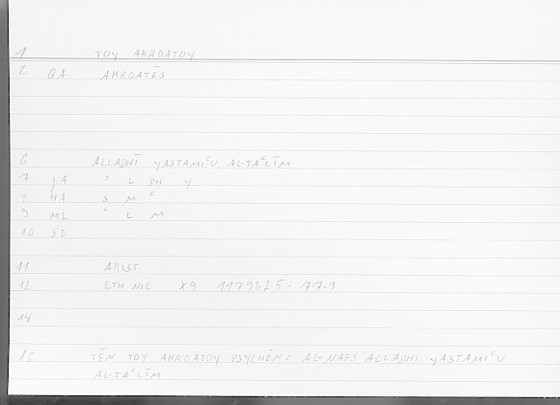 1 TOY AKROATOY
2 QA AKROATĒS
6 ALLADHĪ YASTAMIᶜU AL-TAᶜLĪM
7 JA ᵓ L DH Y
8 HA S M ᶜ
9 ML ᶜ L M
10 SE
11 ARIST
12 ETH NIC X9 1179b25: 77.1
14
16 TĒN TOY AKROATOY PSYCHĒN: AL-NAFS ALLADHI YASTAMIᶜU
AL-TAᶜLĪM